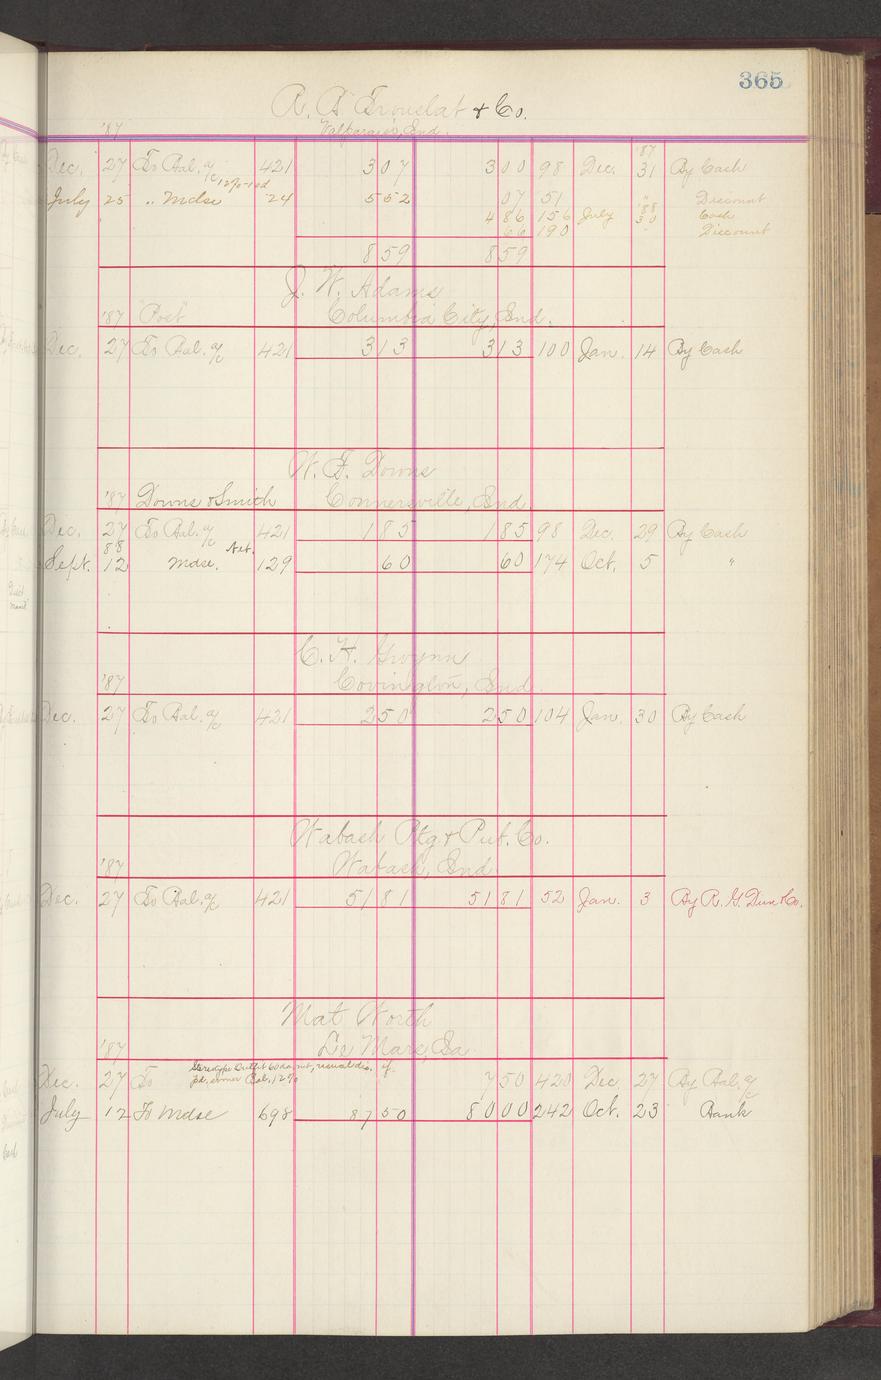 365
R. A. Trouslat & Co.
'87 Valparaiso, Ind.
'87
Dec. 27 To Bal. a/c 421 307 300 98 Dec. 31 By Cash
12% 10d
July 25 " Mdse 24 552 07 51 " Discount
'88
486 156 July 30 Cash
66 190 " Discount
859 859
J. W. Adams
'87 "Post" Columbia City, Ind.
Dec. 27 To Bal. a/c 421 313 313 100 Jan. 14 By Cash
W. F. Downs
'87 Downs & Smith Connersville, Ind.
Dec. 27 To Bal. a/c 421 185 185 98 Dec. 29 By Cash
88 Net.
Sept. 12 Mdse. 129 60 60 174 Oct. 5 "
C. H. Gwynn
'87 Covington, Ind.
Dec. 27 To Bal. a/c 421 250 250 104 Jan. 30 By Cash
Wabash Ptg. & Pub. Co.
'87 Wabash, Ind
Dec. 27 To Bal. a/c 421 5181 5181 52 Jan. 3 By R. G. Dun & Co.
Mat Worth
'87 Le Mars, Ia
Stereotype Outfit 60 da. net, usual dis. if
Dec. 27 To pd. sooner Bal. 12% 750 420 Dec. 27 By Bal. a/c
July 12 To Mdse 698 8750 8000 242 Oct. 23 Bank